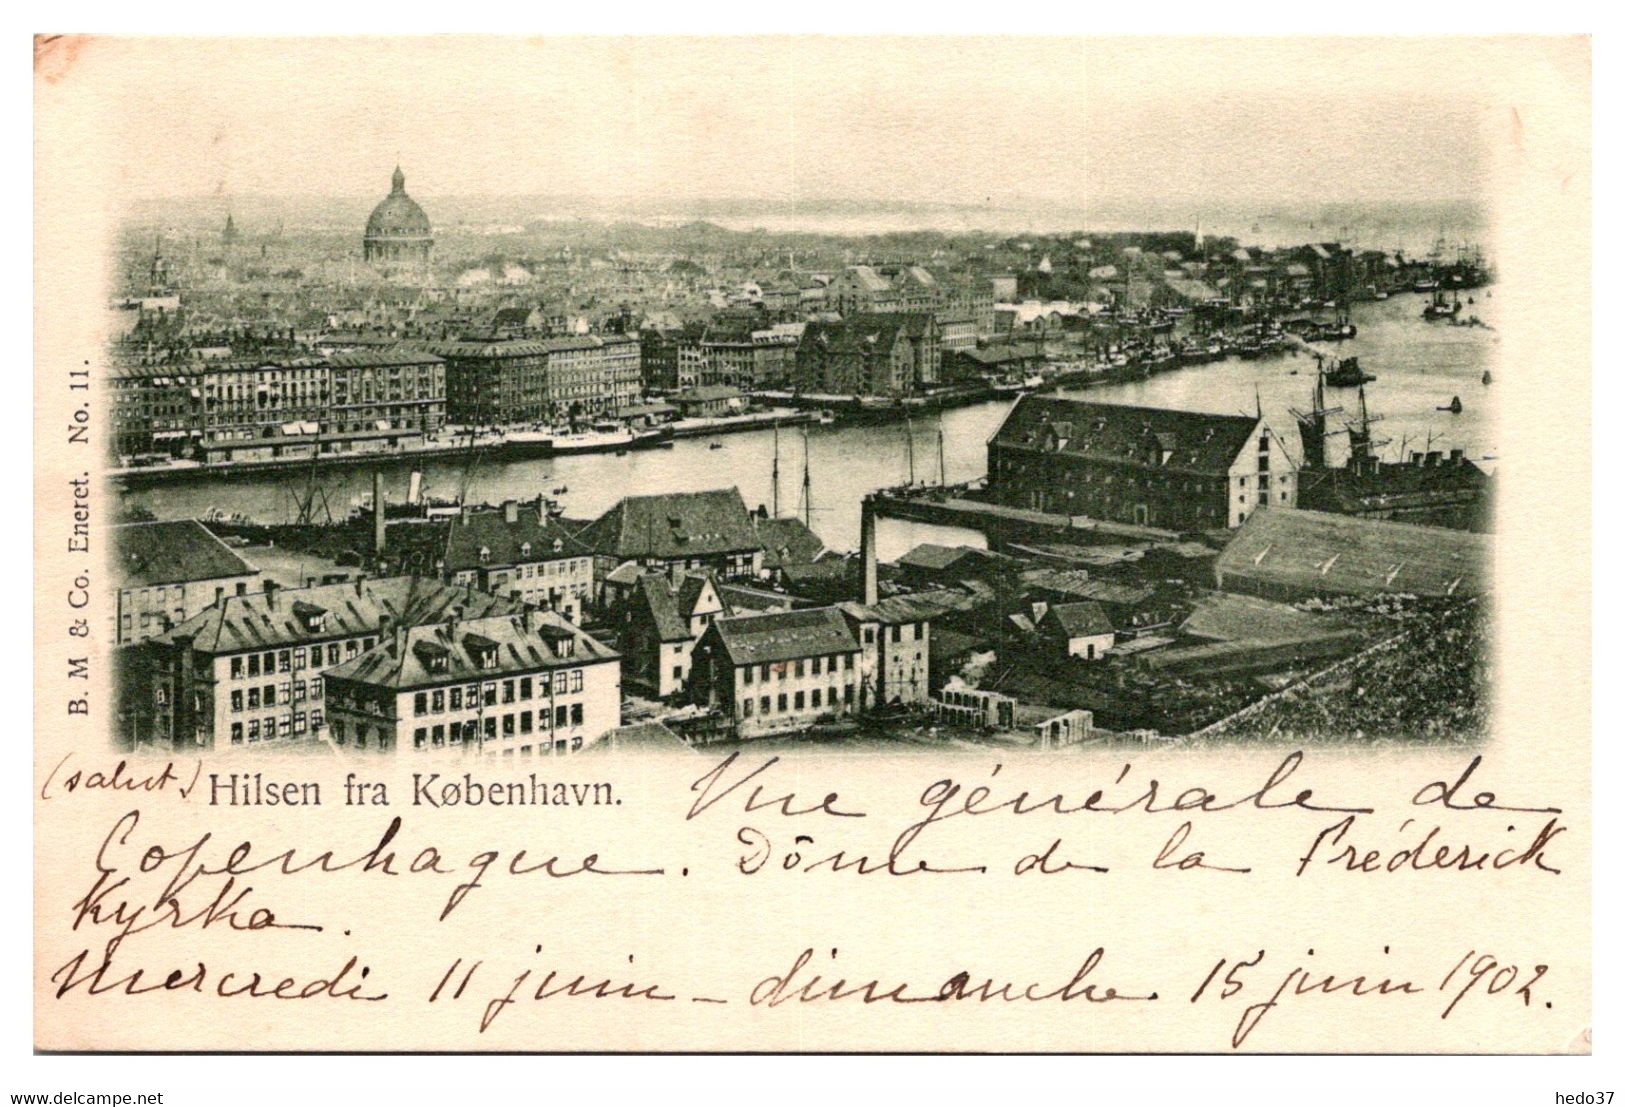 B. M & Co. Eneret. No. 11.
(salut) Hilsen fra København. Vue générale de
Copenhague. Dôme de la Fréderick
Kyrka.
Mercredi 11 juin - dimanche 15 juin 1902.
www.delcampe.net
hedo37